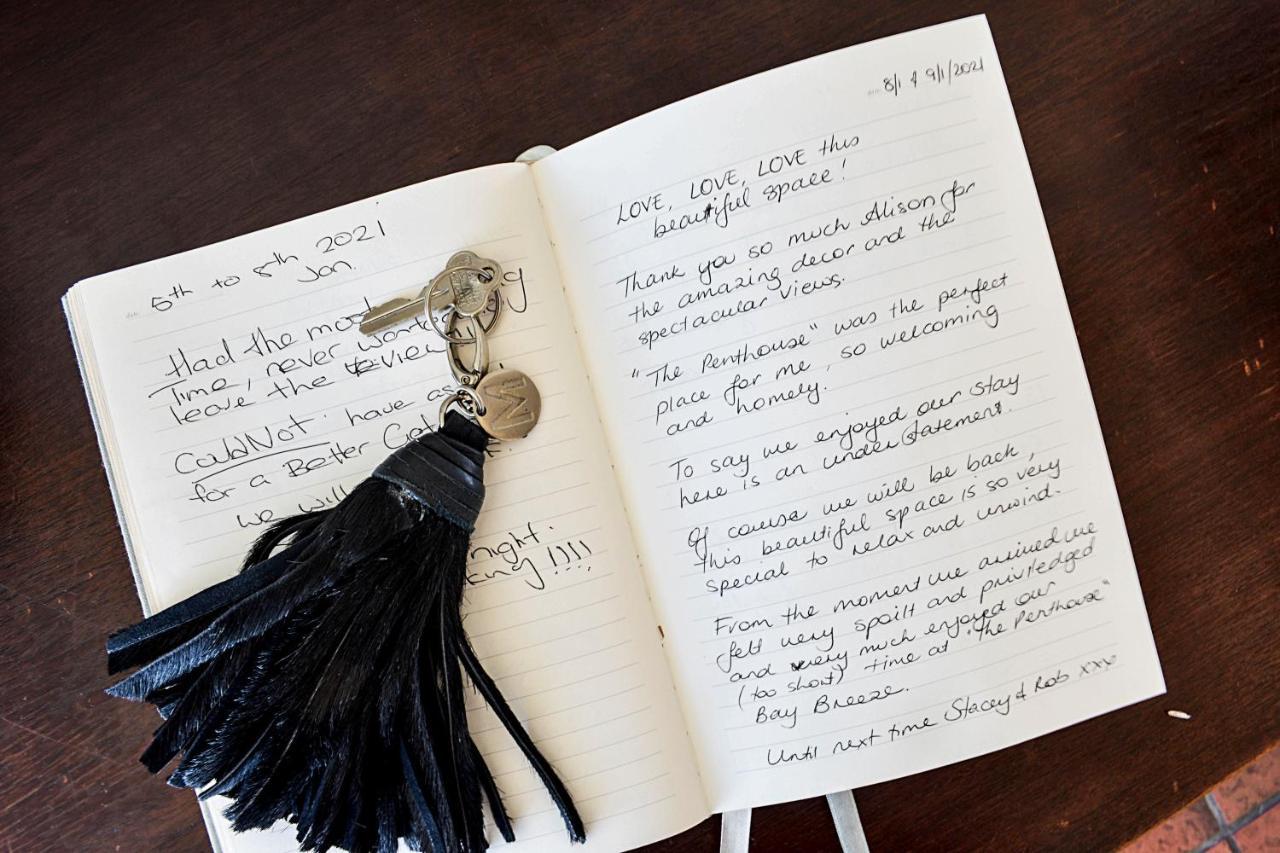 5th to 8th 2021
Jan.
Had the mo
Time, never
leave the view
CouldNot have as
for a Better Get
we will
night.
!!!!
M
8/1 & 9/1/2021
LOVE, LOVE, LOVE this
beautiful space!
Thank you so much Alison for
the amazing decor and the
spectacular views.
"The Penthouse" was the perfect
place for me, so welcoming
and homely.
To say we enjoyed our stay
here is an understatement.
Of course we will be back,
this beautiful space is so very
special to relax and unwind.
From the moment we arrived we
felt very spoilt and priviledged
and very much enjoyed our
(too short) time at "The Penthouse"
Bay Breeze.
Until next time Stacey & Rob xxx